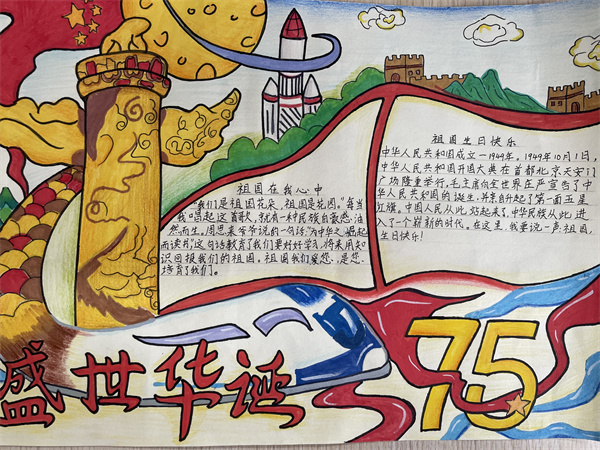 祖国在我心中
"我们是祖国花朵，祖国是花园。"每当
我唱起这首歌，就有一种民族自豪感油
然而生。周恩来爷爷说的一句话，"为中华之崛起
而读书"，这句话教育了我们要好好学习，将来用知
识回报我们的祖国。祖国我们爱您，是您
培育了我们。
祖国生日快乐
中华人民共和国成立一1949年。1949年10月1日，
中华人民共和国开国大典在首都北京天安门
广场隆重举行。毛主席向全世界庄严宣告了中
华人民共和国的诞生，并亲自升起了第一面五星
红旗。中国人民从此站起来了，中华民族从此进
入了一个崭新的时代。在这里，我要说一声:祖国，
生日快乐!
盛世华诞
75